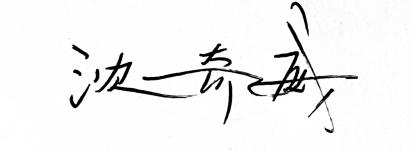 沈奇威